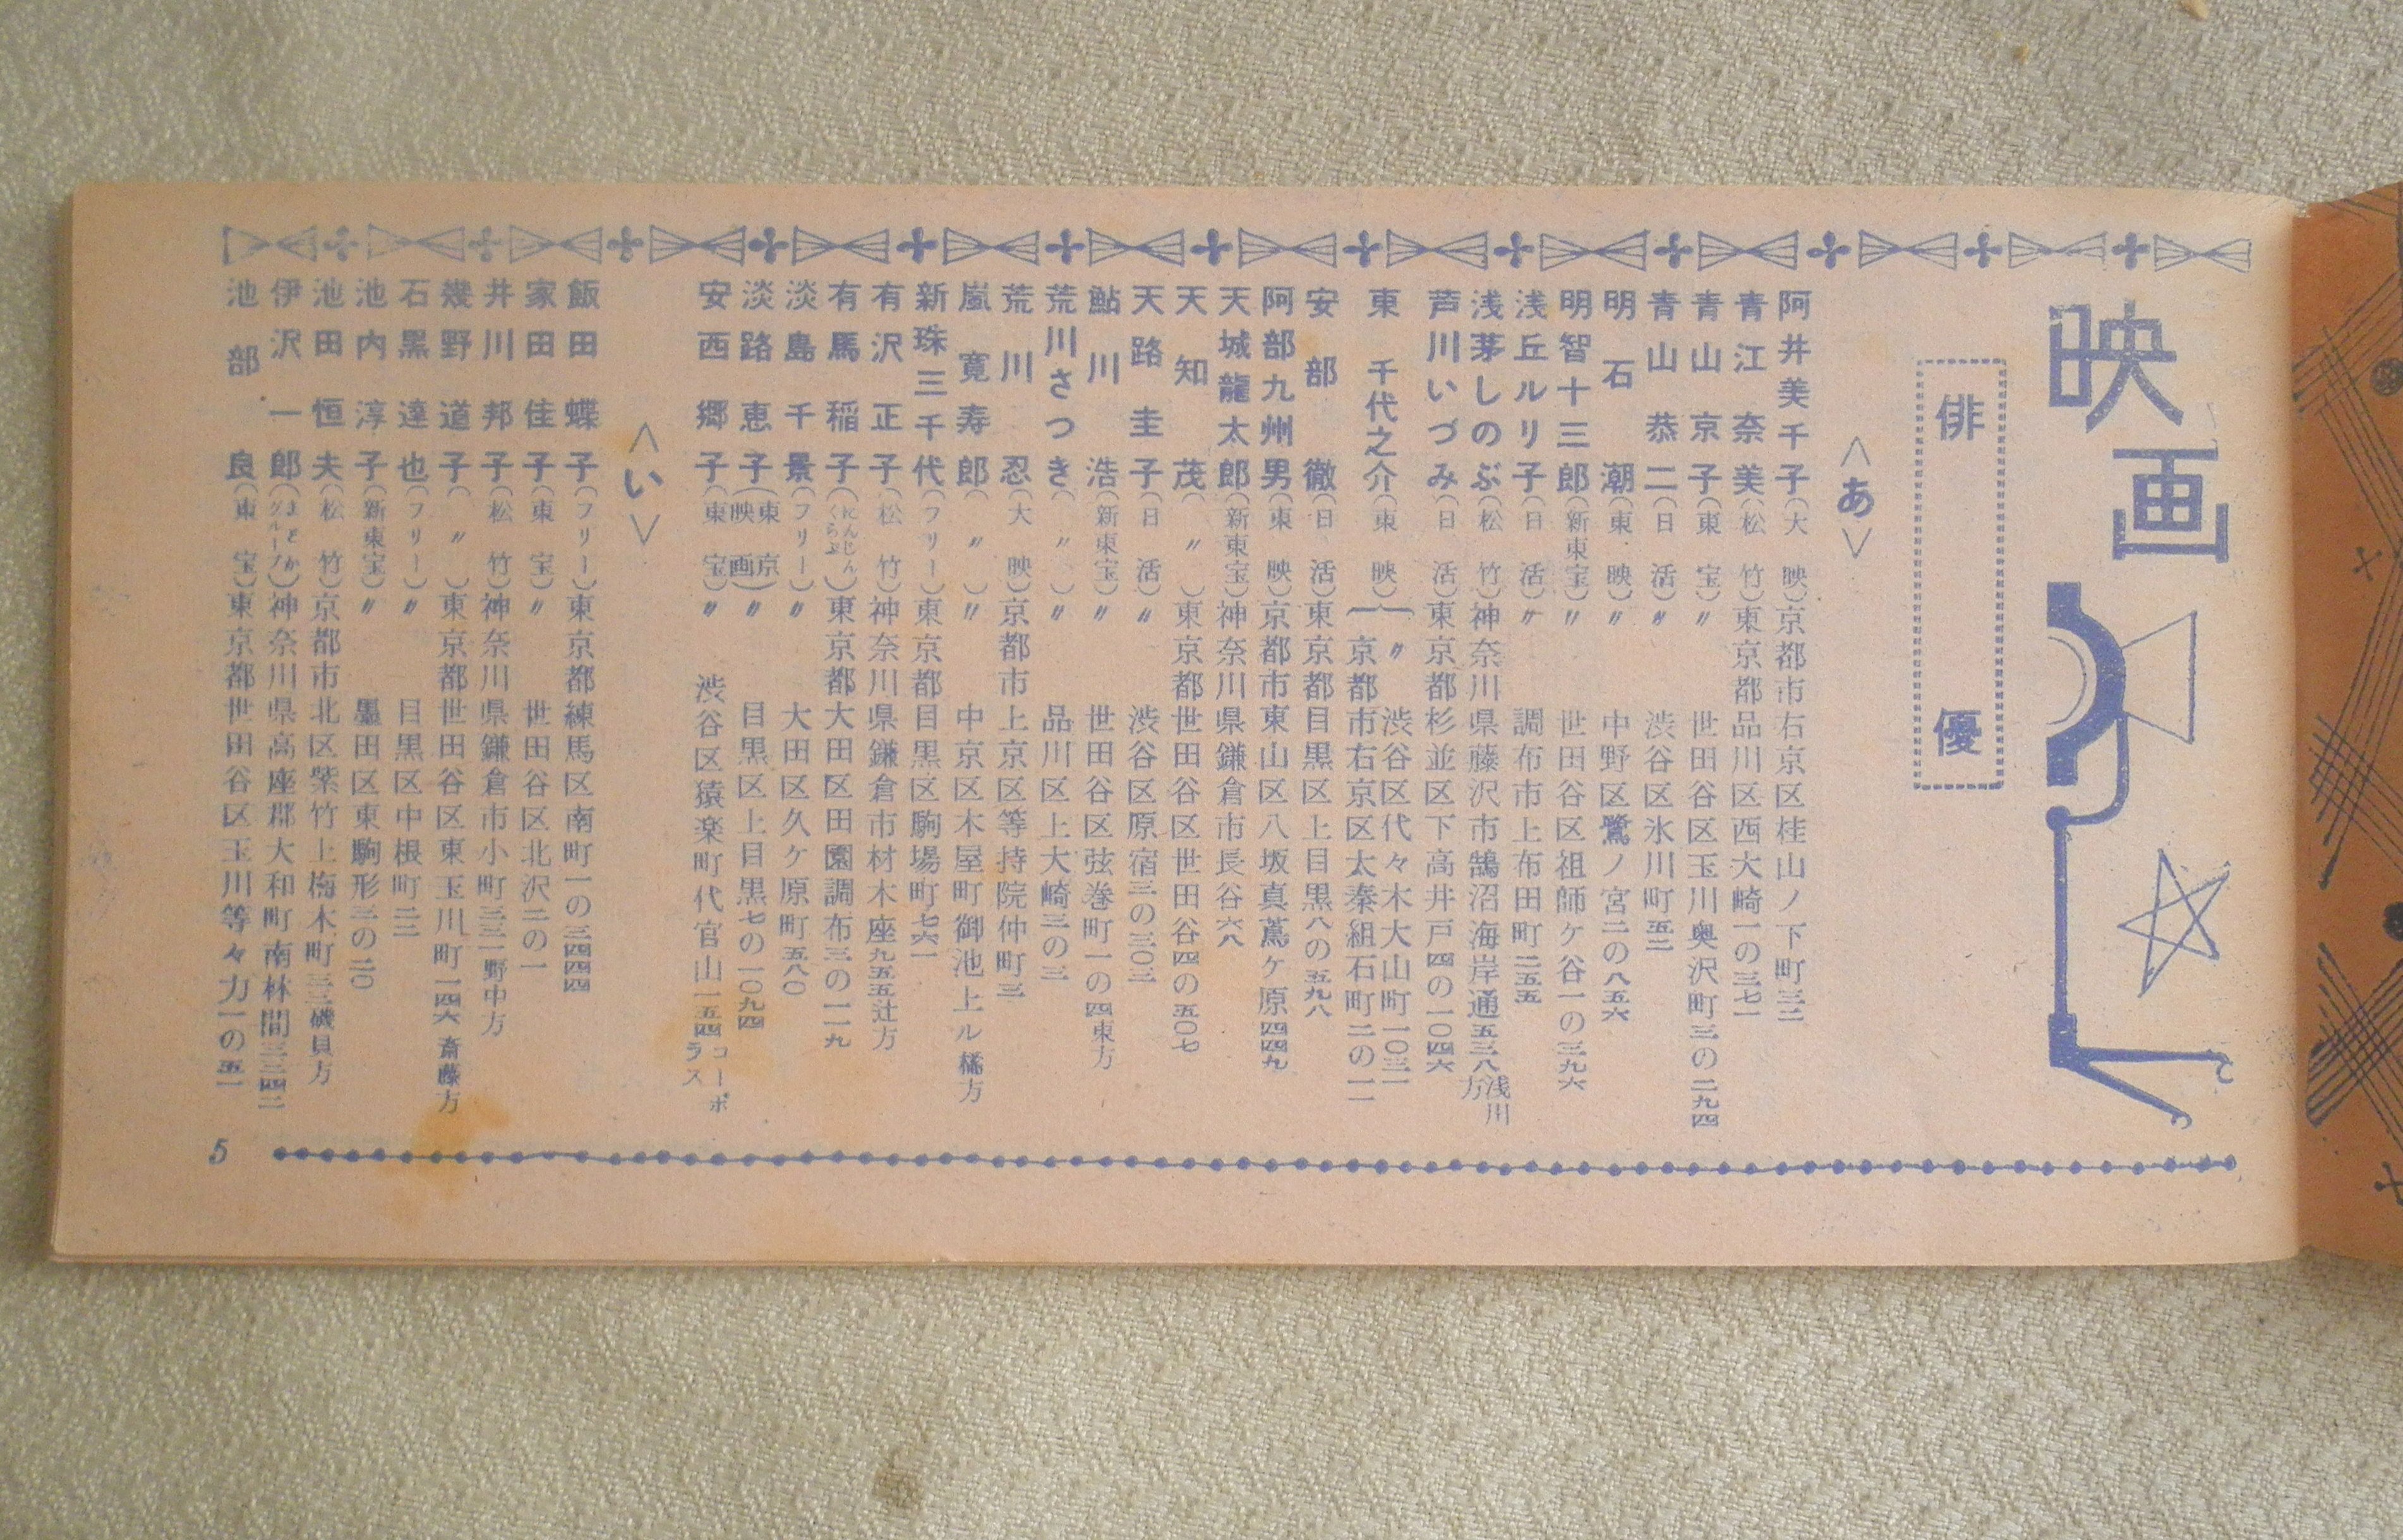 映画
俳優
<あ>
阿井美千子(大映)京都市右京区桂山ノ下町三二
青江奈美(松竹)東京都品川区西大崎一の三七一
青山京子(東宝)〃世田谷区玉川奥沢町三の二九四
青山恭二(日活)〃渋谷区氷川町五二
明石潮(東映)〃中野区鷺ノ宮二の八五六
明智十三郎(新東宝)〃世田谷区祖師ケ谷一の三九六
浅丘ルリ子(日活)〃調布市上布田町二五五
浅茅しのぶ(松竹)神奈川県藤沢市鵠沼海岸通五三八浅川方
芦川いづみ(日活)東京都杉並区下高井戸四の一〇四六
東千代之介(東映)〃渋谷区代々木大山町一〇三一
京都市右京区太秦組石町二の一一
安部徹(日活)東京都目黒区上目黒八の五九八
阿部九州男(東映)京都市東山区八坂真蔦ケ原四四九
天城龍太郎(新東宝)神奈川県鎌倉市長谷六八
天知茂(〃)東京都世田谷区世田谷四の五〇七
天路圭子(日活)〃渋谷区原宿三の三〇三
鮎川浩(新東宝)〃世田谷区弦巻町一の四東方
荒川さつき(〃)〃品川区上大崎三の三
荒川忍(大映)京都市上京区等持院仲町三
嵐寛寿郎(〃)〃中京区木屋町御池上ル橘方
新珠三千代(フリー)東京都目黒区駒場町七六一
有沢正子(松竹)神奈川県鎌倉市材木座九五五辻方
有馬稲子(にんじんくらぶ)東京都大田区田園調布三の一一九
淡島千景(フリー)〃大田区久ケ原町五八〇
淡路恵子(東京映画)〃目黒区上目黒七の一〇九四
安西郷子(東宝)〃渋谷区猿楽町代官山一五四コーポラス
<い>
飯田蝶子(フリー)東京都練馬区南町一の三四四四
家田佳子(東宝)〃世田谷区北沢二の一
井川邦子(松竹)神奈川県鎌倉市小町三三一野中方
幾野道子(〃)東京都世田谷区東玉川町一四六斎藤方
石黒達也(フリー)〃目黒区中根町二三
池内淳子(新東宝)〃墨田区東駒形三の二〇
池田恒夫(松竹)京都市北区紫竹上梅木町三三磯貝方
伊沢一郎(まどかグループ)神奈川県高座郡大和町南林間三三四二
池部良(東宝)東京都世田谷区玉川等々力一の五一
5